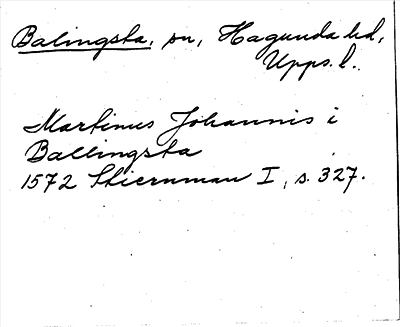 Balingsta, sn, Hagunda hd,
Upps. l.
Martinus Johannis i
Ballingsta
1572 Stiernman I, s. 327.